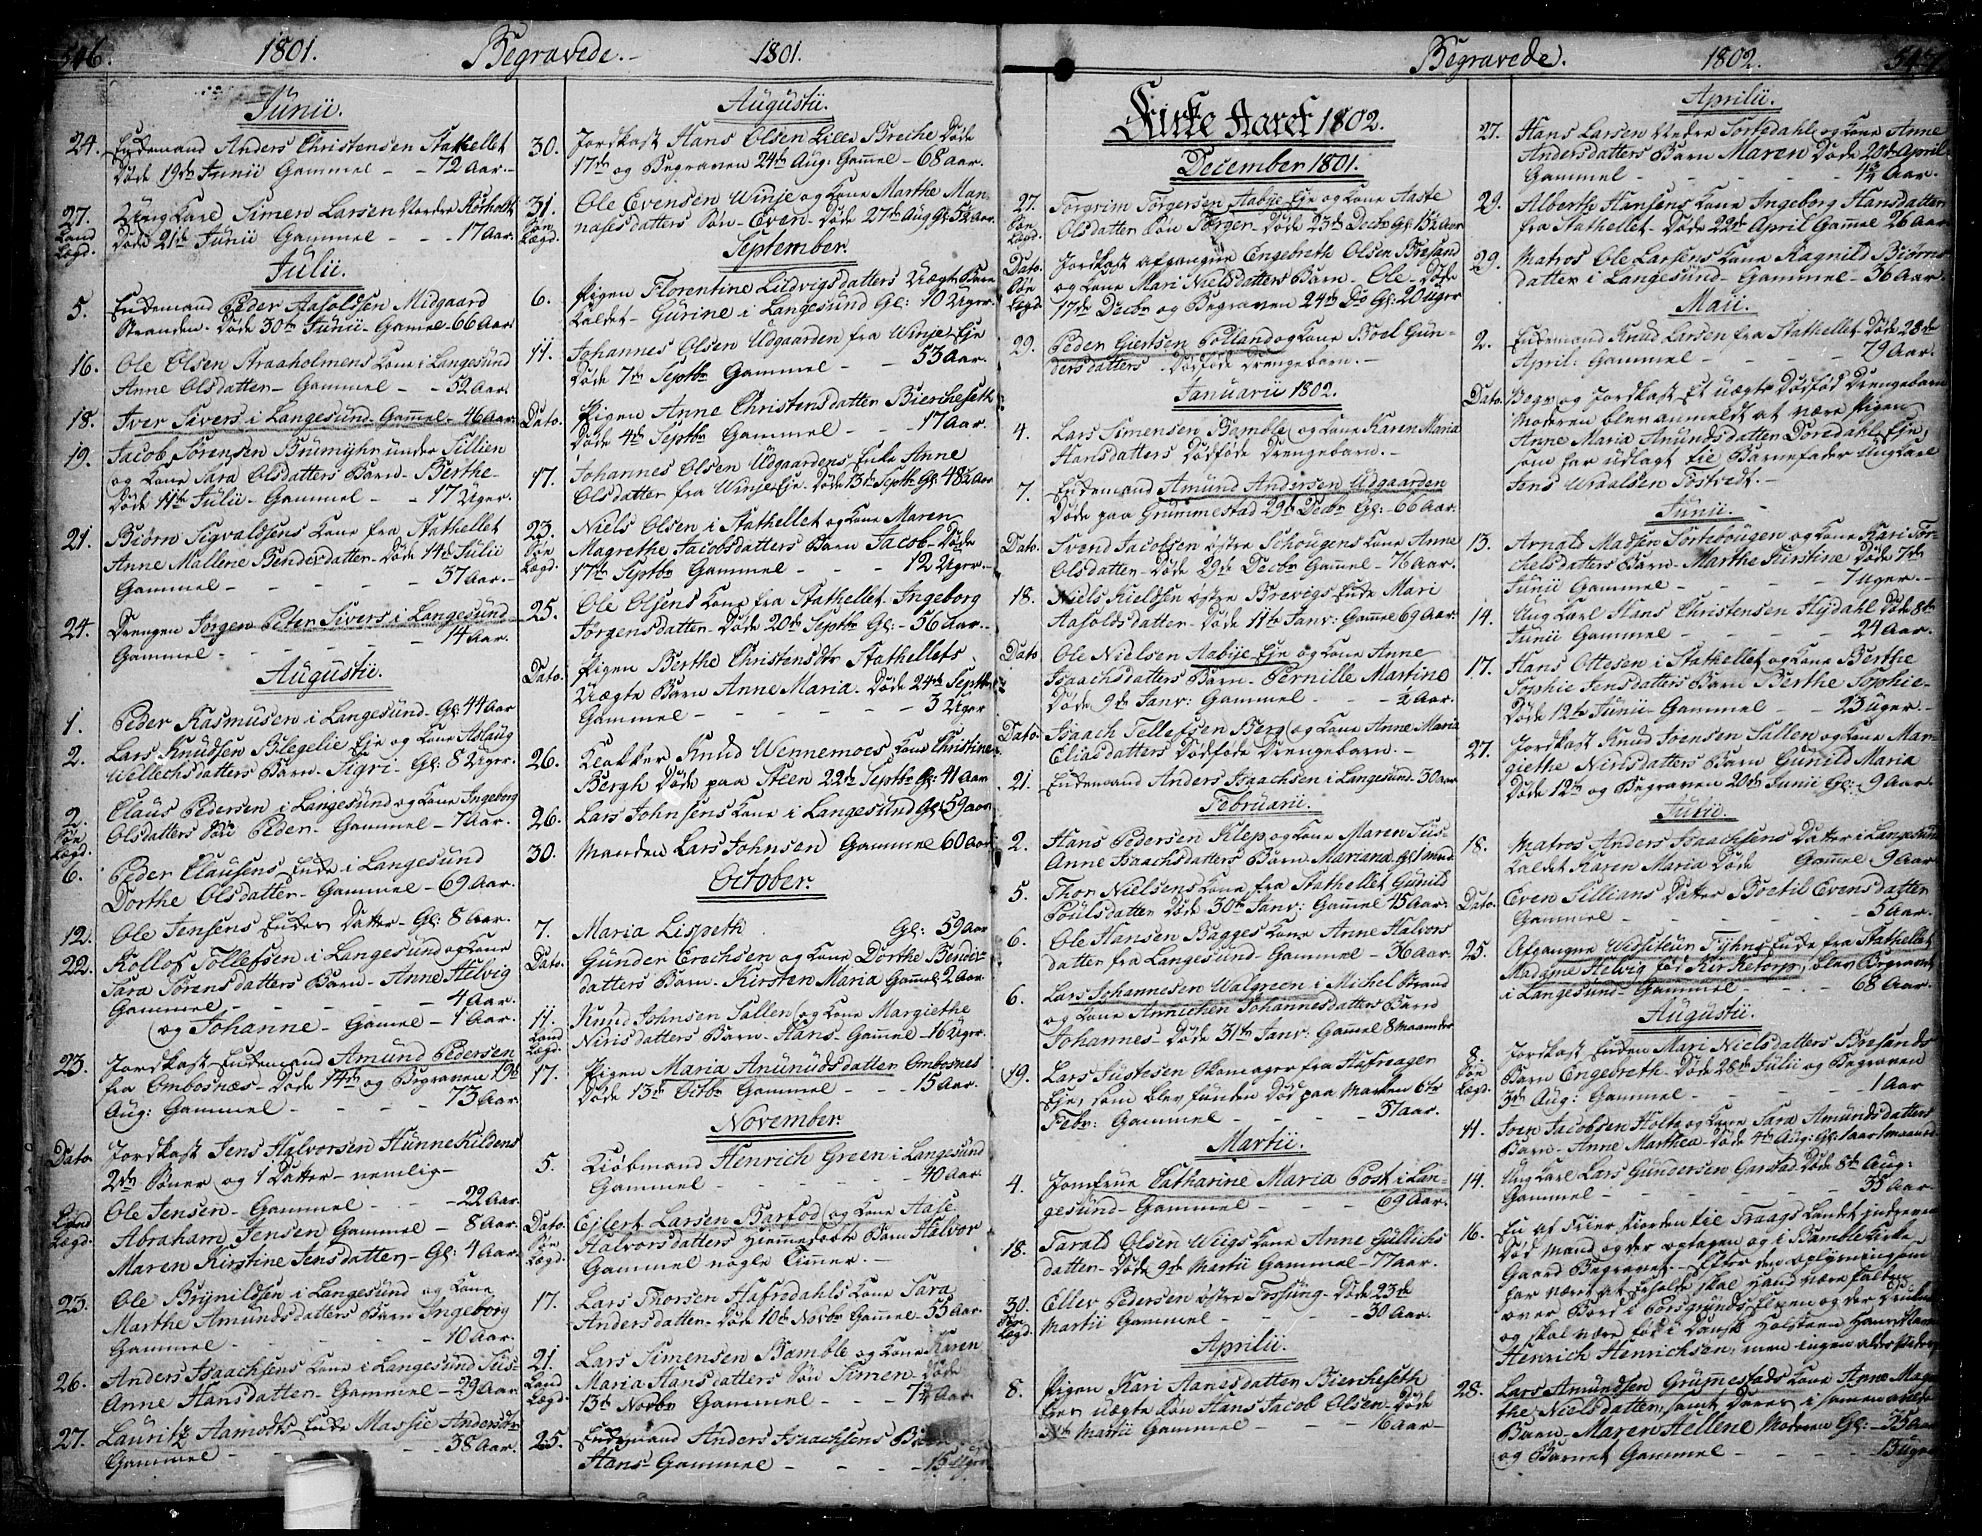 546.
1801.
Begravede.
1801.
Junii.
24. Enkemand Anders Christensen Stathellet
Døde 19de Junii Gammel - - 72 Aar.
27. Ung Karl Simen Larsen Nordre Rørholt
Land Lægd. Døde 21de Junii Gammel - - 17 Aar.
Julii.
5. Enkemand Peder Aasoldsen Midgaard
Stranden. Døde 30te Junii - Gamel 66 Aar
16. Ole Olsen Kraaholmens Kone i Langesund
Anne Olsdatter - Gammel - - 52 Aar.
18. Iver Sivers i Langesund - Gammel - 46 Aar
19. Jacob Sørensen Brumyhr under Tillien
og Kone Sara Olsdatters Barn - Berthe -
Døde 11te Julii - Gammel - - 17 Uger.
21. Biørn Sigvaldsens Kone fra Stathellet
Anne Mallene Bendixdatter - Døde 14de Julii
Gammel - - - - 37 Aar. -
24. Drengen Jørgen Peter Sivers i Langesund
Gammel - - - - 14 Aar.
Augustii.
1. Peder Rasmusen i Langesund - Gl: 44 Aar
2. Lars Knudsen Blegelie Eje og Kone Aslaug
Wellechsdatters Barn - Sigri - Gl: 8 Uger.
2. Claus Pedersen i Langesund og Kone Ingeborg
Søe Lægd. Olsdatters Søn Peder - Gammel - 7 Aar.
6. Peder Clausens Enke i Langesund
Dorthe Olsdatter - Gammel - 69 Aar.
12. Ole Jensens Enkes Datter - Gl: 8 Aar.
22. Rollof Tollefsen i Langesund og Kone
Sara Sørensdatters Barn - Anne Helvig
Gammel - - - - 4 Aar.
og Johanne - Gamel - 1 Aar.
23. Jordkast Enkemand Amund Pedersen
fra Ombosnæs - Døde 14de og Begraven 19de
Aug: Gammel - - - - 73 Aar.
Dato. Jordkast Jens Halvorsen Hunnekildens
2de Sønner og 1 Datter - nemlig -
Ole Jensen - Gammel - - 22 Aar.
Land Lægd. Abraham Jensen Gammel - 8 Aar.
Maren Kirstine Jensdatter - Gl: 4 Aar.
23. Ole Brynildsen i Langesund og Kone
Marthe Amundsdatters Barn Ingeborg
Gammel - - - - 10 Aar.
26. Anders Isaachsens Kone i Langesund Sus-
Anne Hansdatter - Gammel - 29 Aar.
27. Lauritz Aamodts Enke Massie Andersdtr
Gammel - - - - 38 Aar.
Augustii.
30. Jordkast Hans Olsen Lille Breche Døde
17de og Begraven 24de Aug: Gammel - 68 Aar.
31. Ole Evensen Winje og Kone Marthe Man-
Søe Lægd. nasesdatters Søn - Even - Døde 27de Aug Gl: 5½ Aar
September.
6. Pigen Florentine Ludvigsdatters Uægte Barn
kaldet - Gurine i Langesund Gl: 10 Uger.
11. Johannes Olsen Udgaarden fra Winje Eje
Døde 7de Septbr Gammel - - 53 Aar.
Dato. Pigen Anne Christensdatter Biercheseth
Døde 4de Septbr Gammel - - 17 Aar.
17. Johannes Olsen Udgaardens Enke Anne
Olsdatter fra Winje Eje - Døde 13de Septbr Gl: 48½ Aar
23. Niels Olsen i Stathellet og Kone Maren
Søe Lægd. Magrethe Jacobsdatters Barn Jacob - Døde
17de Septbr Gammel - - 12 Uger.
25. Ole Olsens Kone fra Stathellet - Ingeborg
Jørgensdatter - Døde 20de Septbr Gl: - 56 Aar.
Dato. Pigen Berthe Christensdtr Stathellets
Uægte Barn Anne Maria. Døde 24de Septbr
Gammel - - - - 3 Uger
26. Klokker Knud Wennemoes Kone Christine
Bergh Døde paa Steen 22de Septbr Gl: 41 Aar
26. Lars Johnsens Kone i Langesund Gl: 59 Aar
30. Manden Lars Johnsen Gammel 60 Aar
October.
7. Maria Lispeth Gl: 59 Aar
Dato. Gunder Erochsen og Kone Dorthe Bendix-
datters Barn - Kirsten Maria Gammel 2 Aar.
11. Knud Johnsen Sallen og Kone Margiethe
Land Lægd. Nirisdatters Barn - Hans - Gammel - 16 Uger.
17. Pigen Maria Amunds datter Ombosnes
Døde 13de Octbr Gammel - - 15 Aar.
November.
5. Kiøbmand Henrich Green i Langesund
Gammel - - - - 40 Aar
Dato. Ejlert Larsen Barfod og Kone Aase
Søe Lægd. Halvorsdatters hiemmedøbte Barn Halvor
Gammel nogle Timer. -
17. Lars Thorsen Hafredahls Kone Sara
Andersdatter - Døde 10de Novbr Gammel - 55 Aar.
21. Lars Simensen Bamble og Kone Karen
Land Lægd. Maria Hansdatters Søn Simen - Døde
13de Novbr Gammel - - 7¼ Aar
25. Enkemand Anders Isaachsens Barn
Hans - Gammel - - - - 15 Uger
Begravede.
1802.
547.
Kirke Aaret 1802.
December 1801.
27. Torgrim Torgersen Aabye Eje og Kone Aaste
Søe Lægd. Olsdatter Søn Torger - Døde 23de Decbr Gl: 15½ Aar
Dato Jordkast afgangne Engebreth Olsen Bresand
Søe Lægd. og Kone Mari Nielsdatters Barn - Ole - Døde
17de Decbr og Begraven 24de Do Gl: 20 Uger
29. Peder Giertsen Polland og Kone Boel Gun-
dersdatters Dødføde Drengebarn. -
Januarii 1802.
4. Lars Simensen Bamble og Kone Karen Maria
Hansdatters Dødføde Drengebarn. -
7. Enkemand Amund Andersen Udgaarden
Døde paa Grummestad 29de Decbr Gl: 66 Aar
Dato. Svend Jacobsen østre Schougens Kone Anne
Olsdatter - Døde 29de Decbr Gammel - 76 Aar.
18. Niels Kield­sen østre Brevigs Enke Mari
Aasoldsdatter - Døde 11te Janv: Gammel 69 Aar.
Dato Ole Nielsen Aabye Eje og Kone Anne
Isaachsdatters Barn - Pernille Martine
Døde 9de Janv: Gammel - - ½ Aar.
Dato. Isaach Tellefsen Berg og Kone Anne Maria
Eliasdatters Dødføde Drengebarn. -
21. Enkemand Anders Isaachsen i Langesund. 30 Aar
Februarii.
2. Hans Pedersen Klep og Kone Maren Sus-
Anne Isaachsdatters Barn Mariana Gl: 1 Mnd
5. Thor Nielsens Kone fra Stathellet Gunild
Poulsdatter Døde 30te Janv: Gammel 45 Aar.
6. Ole Hansen Bagges Kone Anne Halvors
datter fra Langesund - Gammel - 36 Aar.
6. Lars Johannesen Walgreen i Michel Strand
og Kone Annichen Johannesdatters Barn
Johannes - Døde 31te Janv: Gammel 8 Maaneder
19. Lars Justesen Skomager fra Hafsager
Eje, som blev funden Død paa Marken 6te
Febr: Gammel - - - 37 Aar.
Martii.
4. Jomfrue Catharine Maria Post i Lan-
gesund - Gammel - - - 69 Aar.
18. Tarald Olsen Weigs Kone Anne Gullichs
datter - Døde 9de Martii Gammel - 77 Aar.
30. Ellev Pedersen østre Fossung - Døde 23de
Søe Lægd. Martii Gammel - - - 30 Aar.
Aprilii.
8. Pigen Kari Aanesdatter Biercheseth
hendes uægte Søn Hans Jacob Olsen - Døde
31te Martii Gammel - - 16 Aar -
Aprilii.
27. Hans Larsen Nedre Tortsdahl og Kone Anne
Andersdatters Barn Maren Døde 20de April
Gammel - - - - 4½ Aar.
29. Alberth Hansens Kone Ingeborg Hansdatter
fra Stathellet - Døde 22de April Gammel 26 Aar.
29. Matros Ole Larsens Kone Ragnild Biørns-
datter i Langesund - Gammel - 36 Aar.
Maii.
2. Enkemand Knud Larsen fra Stathellet Døde 28de
April: Gammel - - - - 79 Aar.
Dato. Begr. og Jordkast Et uægte Dødfød Drengebarn
Moderen blev anmeldt at være Pigen
Anne Maria Amundsdatter Doredahl Eje,
som har udlagt til Barnefader Ung Karl
Jens Wraalsen Tostvedt. -
Junii. -
13. Arnold Madsen Tortebougen og Kone Kari Tor-
chelsdatters Barn - Marthe Kirstine Døde 7de
Junii Gammel - - - - 7 Uger. -
14. Ung Karl Hans Christensen Hydahl Døde 8de
Junii Gammel - - - - 24 Aar.
17. Hans Ottesen i Stathellet og Kone Berthe
Sophie Jensdatters Barn Berthe Sophie -
Døde 12te Junii Gammel - - 23 Uger. -
27. Jordkast Knud Svensen Sallen og Kone Mar-
giethe Nirisdatters Barn Gunild Maria
Døde 12te og Begraven 20de Junii Gl: 9 Aar.
Julii.
18. Matros Anders Isaachsens Datter i Langesund
kaldet Karen Maria Døde Gammel 9 Aar
Dato. Even Tillians Datter Boetil Evensdatter
Gammel - - - - 5 Aar
25. Afgangne Visiteur Tyhns Enke fra Stathellet
Madame Helvig fød Kirketorp, blev Begravet
i Langesund - Gammel - - 68 Aar.
Augustii.
8. Jordkast Enken Mari Nielsdatters Bresands
Søe Lægd. Barn Engebreth - Døde 28de Julii og Begraven
3de Aug: Gammel - - - 1 Aar
11. Sven Jacobsen Holte og Kone Sara Amundsdatters
Barn - Anne Marthea - Døde 4de Aug: Gl: 1 Aar 1 Maaned
14. Ung Karl Lars Gundersen Garstad Døde 8de Aug:
Gammel - - - - 35 Aar.
16. En af Fier Fiorden til Traags Landet inddreven
Død Mand og der optagen og i Bamble Kirke
Gaard Begravet - Efter den oplysning som
har været at erholde skal hand være falden
over Bord i Porsgrunds Elven og der Druknet
og skal være født i Dansk Holsteen Hans Navn
Henrich Henrichsen, men ingen alder vides
28. Lars Amundsen Grumestads Kone Anne Magre-
the Nielsdatter, samt Deres i samme
Barn - Maren Hellene Moderen Gl: - 35 Aar
og Barnet Gammel - - - 13 Uger